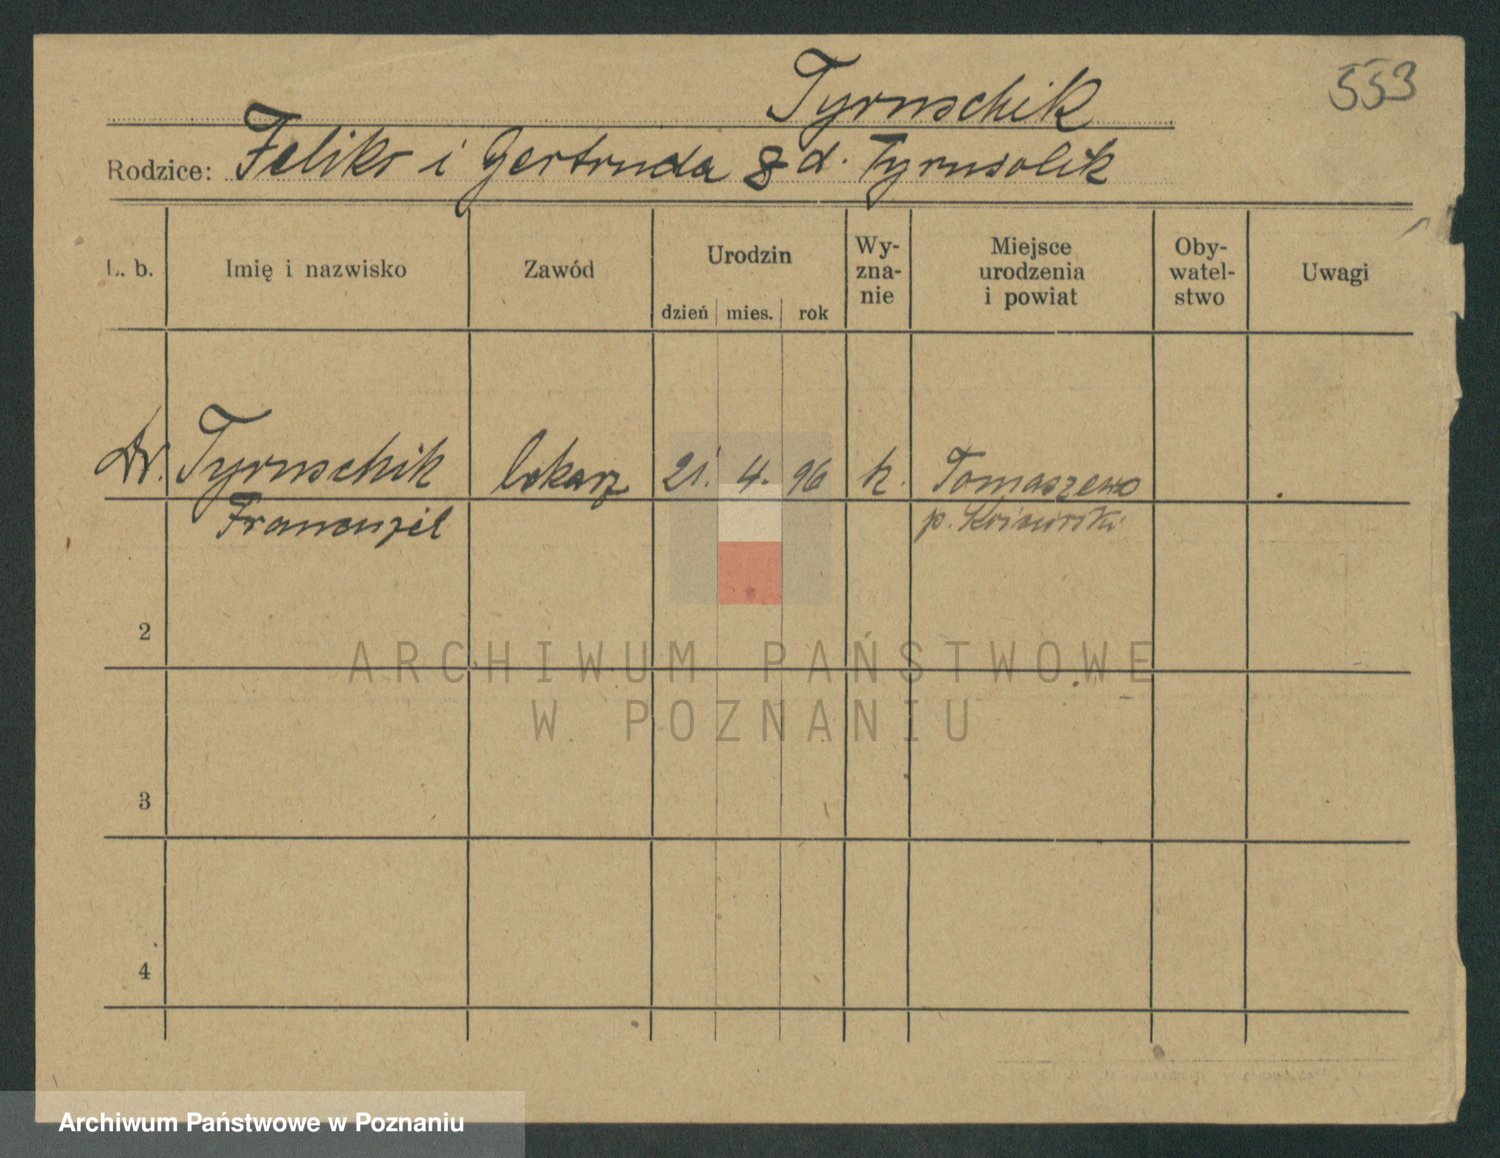 553
Tyrnschik
Rodzice: Feliks i Gertruda z d.
L. b. Imię i nazwisko Zawód Urodzin dzień mies. rok Wy-zna-nie Miejsce urodzenia i powiat Oby-watel-stwo Uwagi
Dr. Tyrnschik lekarz 21. 4. 96 k. Tomaszewo
p.
2
ARCHIWUM PAŃSTWOWE
W POZNANIU
3
4
Archiwum Państwowe w Poznaniu